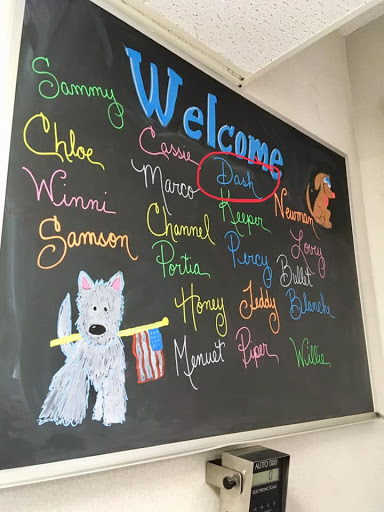 Welcome
Sammy
Chloe
Winni
Samson
Cassie
Marco
Channel
Portia
Honey
Menuet
Dash
Keeper
Percy
Teddy
Piper
Newman
Lovey
Bullet
Blanche
Willie
AUTO 300
ELECTRONIC SCALE